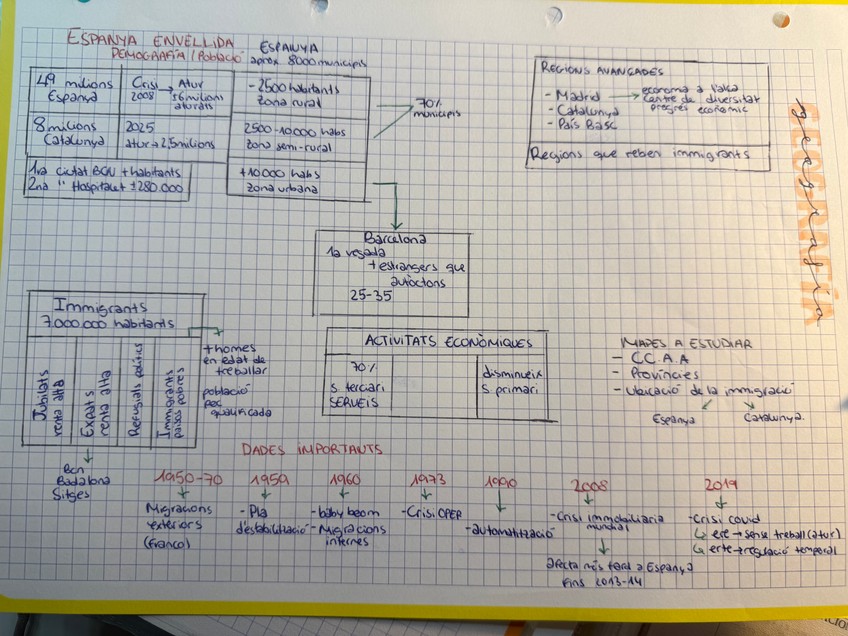 ESPANYA ENVELLIDA
DEMOGRAFÍA / Població
ESPANYA
aprox 8000 municipis
49 milions
Espanya
Crisi → Atur
2008 5'6 milions
aturats
- 2500 habitants
zona rural
8 milions
Catalunya
2025
atur → 2,5 milions
2500-10000 habs
zona semi-rural
70%
municipis
1ra ciutat BCN + habitants
2na " Hospitalet ±280.000
+10000 habs
zona urbana
REGIONS AVANÇADES
- Madrid → economia a l'alça
centre de diversitat
progrés econòmic
- Catalunya
- País Basc
Regions que reben immigrants
geografia
GEOGRAFIA
Barcelona
1a vegada
+ estrangers que
autòctons
25-35
Immigrants
7.000.000 habitants
Jubilats
renta alta
Expats
renta alta
Refugiats polítics
Immigrants
països pobres
+ homes
en edat de
treballar
població
poc
qualificada
Bcn
Badalona
Sitges
ACTIVITATS ECONÒMIQUES
70%
S. terciari
SERVEIS
disminueix
S primari
MAPES A ESTUDIAR
- CC.A.A
- Províncies
- Ubicació de la immigració
Espanya
Catalunya
DADES IMPORTANTS
1950-70
Migracions
exteriors
(Franco)
1959
- Pla
d'estabilització
1960
- baby boom
- Migracions
internes
1973
- Crisi OPER
1990
- automatització
2008
- Crisi immobiliaria
mundial
afecta més tard a Espanya
Fins 2013-14
2019
- Crisi covid
↳ ere → sense treball (atur)
↳ erte → regulació temporal